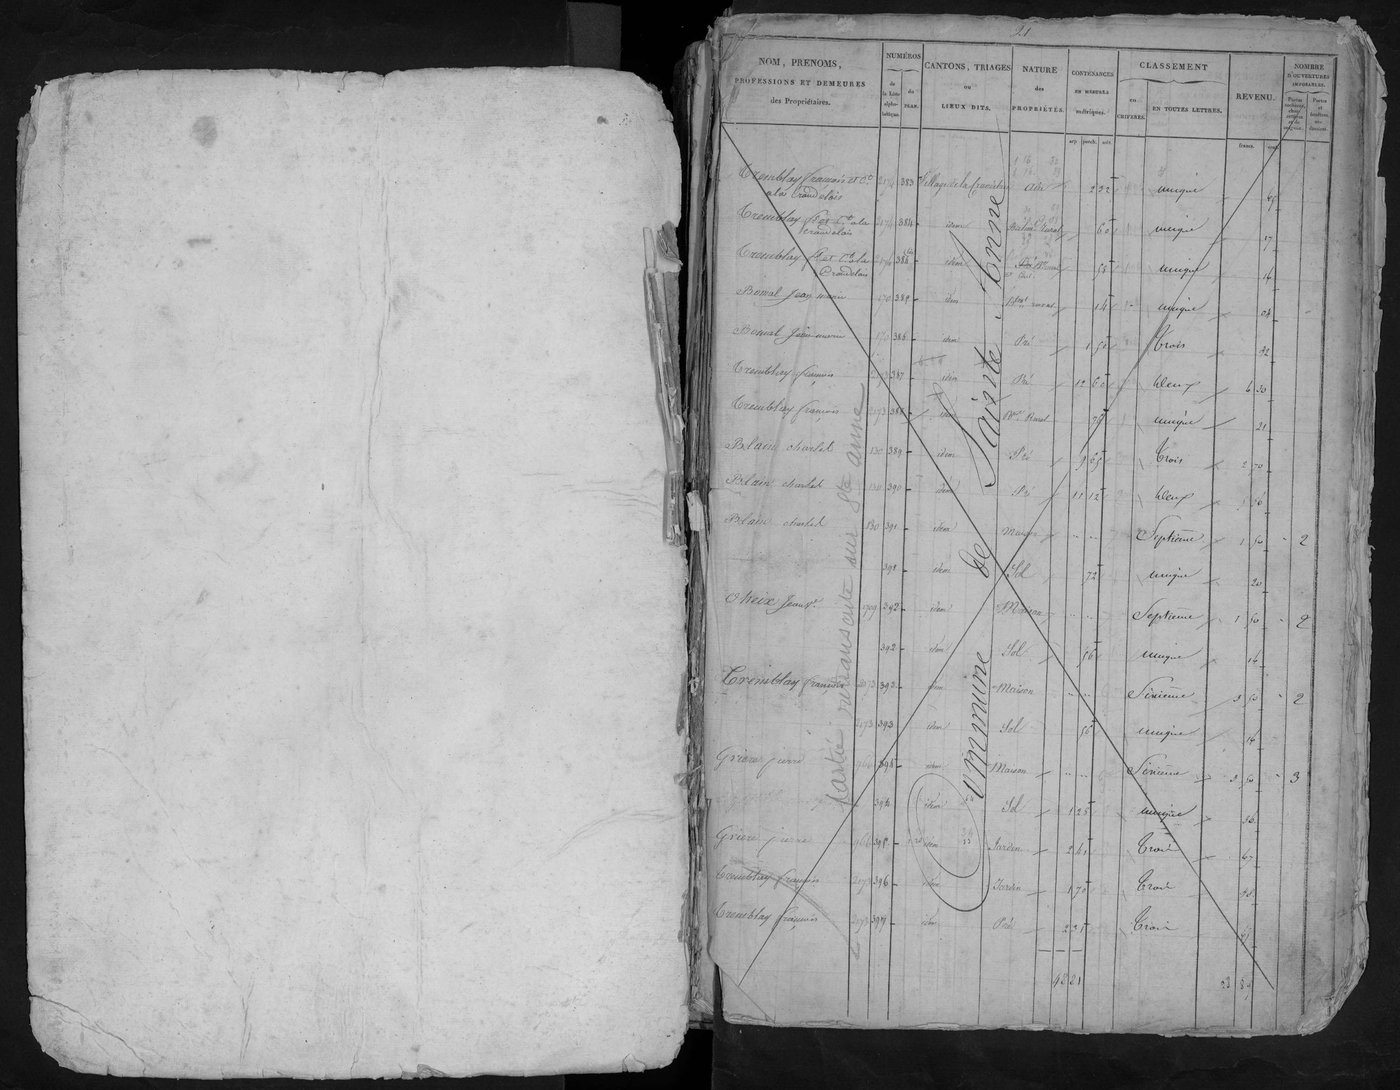 21
NOM, PRÉNOMS,
PROFESSIONS ET DEMEURES
des Propriétaires.
NUMÉROS
de la Liste alphabétique.
du PLAN.
CANTONS, TRIAGES
ou
LIEUX DITS.
NATURE
des
PROPRIÉTÉS.
CONTENANCES
EN MESURES
métriques.
arp. perch. mèt.
CLASSEMENT
en CHIFFRES.
EN TOUTES LETTRES.
REVENU.
francs. cent.
NOMBRE
D'OUVERTURES
IMPOSABLES.
Tremblay françois et Co 2174 383 Village de la Aire 2 32 unique 69
a la Croudelois
Tremblay 2174 384 idem Batim. Rural 60 unique 17
Croudelois
Tremblay 2174 384 bis idem 58 unique 16
Croudelois
Bonval Jean marie 170 385 idem Bmt rural 14 unique 04
Bonval Jean marie 170 386 idem Pré 1 50 Trois 42
Tremblay françois 2173 387 idem Pré 12 60 deux 6 30
Tremblay françois 2173 388 idem Bmt Rural 79 unique 21
Blain charles 130 389 idem Pré 9 65 Trois 2 70
Blain charles 130 390 idem Pré 11 12 deux 5 56
Blain charles 130 391 idem Maison Septième 1 50 2
391 idem Sol 72 unique 20
Cheix Jean 1709 392 idem Maison Septième 1 50 2
392 idem Sol 56 unique 16
Tremblay françois 2073 393 idem Maison Sixième 3 50 2
2173 393 idem Sol 56 unique 16
Griere pierre 966 394 idem Maison Sixième 3 50 3
394 idem Sol 1 25 unique 36
Griere pierre 966 395 idem Jardin 2 41 Trois 67
Tremblay françois 2073 396 idem Jardin 1 70 Trois 48
Tremblay françois 2073 397 idem Pré 2 31 Trois
48 21 28
Commune de Sainte Anne
partie retranscrite sur Ste anne